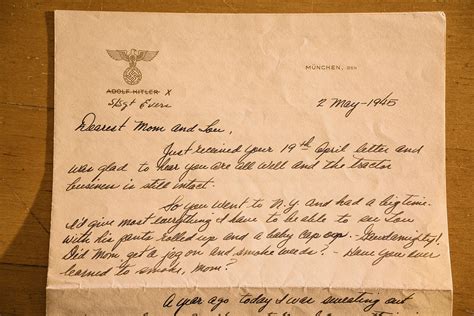 MÜNCHEN, DEN
ADOLF HITLER X
S/Sgt Evers
2 May-1945
Dearest Mom and Lou,
Just received your 19th April letter and
was glad to hear you are all well and the tractor
business is still intact.
So you went to N.Y. and had a big time.
I'd give most everything I have to be able to see Lou
with his pants rolled up and a baby cap on - Godamighty!
Did Mom get a jag on and smoke weeds? - Have you ever
learned to smoke, Mom?
A year ago today I was sweating out